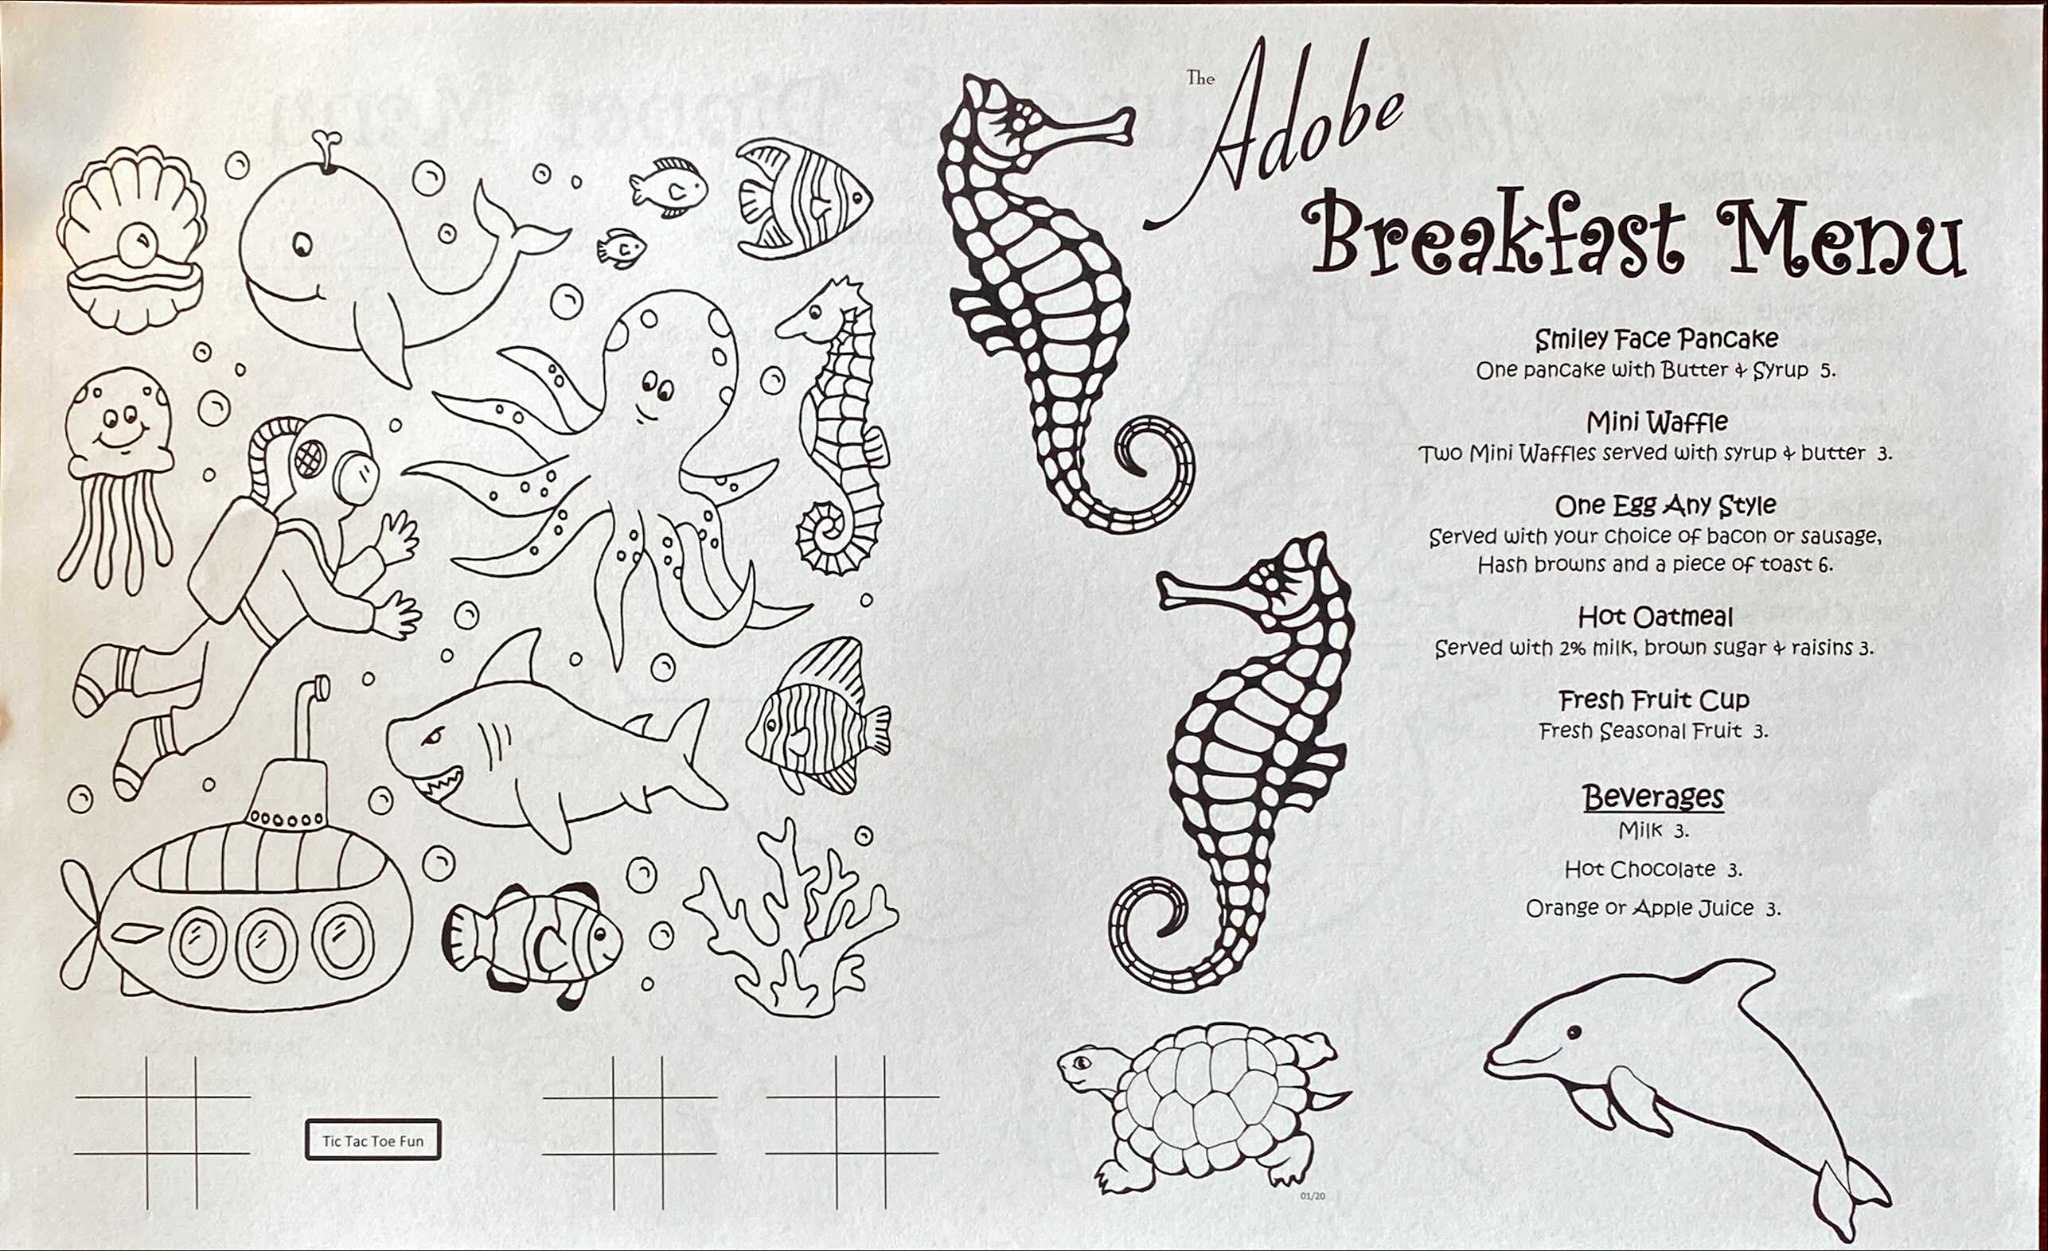 The
Adobe
Breakfast Menu
Smiley Face Pancake
One pancake with Butter & Syrup 5.
Mini Waffle
Two Mini Waffles served with syrup & butter 3.
One Egg Any Style
Served with your choice of bacon or sausage,
Hash browns and a piece of toast 6.
Hot Oatmeal
Served with 2% milk, brown sugar & raisins 3.
Fresh Fruit Cup
Fresh Seasonal Fruit 3.
Beverages
Milk 3.
Hot Chocolate 3.
Orange or Apple Juice 3.
Tic Tac Toe Fun
01/20